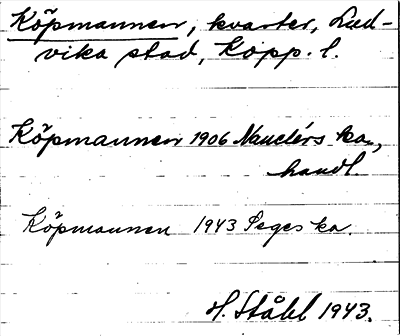 Köpmannen, kvarter, Lud-
vika stad, Kopp. l.
Köpmannen 1906 Nauclérs ka.,
handl.
Köpmannen 1943 Seges ka.
H. Ståhl 1943.